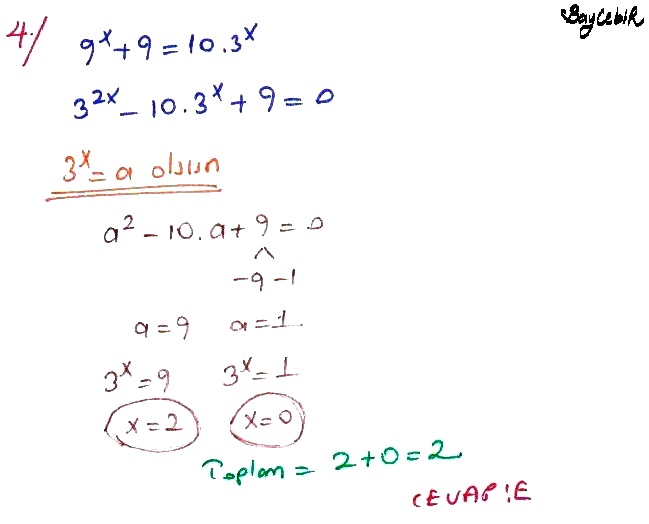 BayCebiR
4-) 9^x + 9 = 10.3^x
3^2x - 10.3^x + 9 = 0
3^x = a olsun
a^2 - 10.a + 9 = 0
-9 -1
a = 9 a = 1
3^x = 9 3^x = 1
x = 2 x = 0
Toplam = 2 + 0 = 2
CEVAP : E